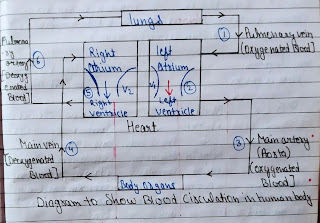 lungs
① Pulmonary vein
(Oxygenated Blood]
Pulmona
ry
artery ⑥
[Deoxyg
enated
Blood]
Right
Atrium
left
Atrium
⑤ V2 V1 ②
Right
ventricle
left
ventricle
Heart
Main vein ④
[Deoxygenated
Blood]
③ Main artery
(Aorta)
(oxygenated
Blood]
Body organs
Diagram to Show Blood Circulation in human body